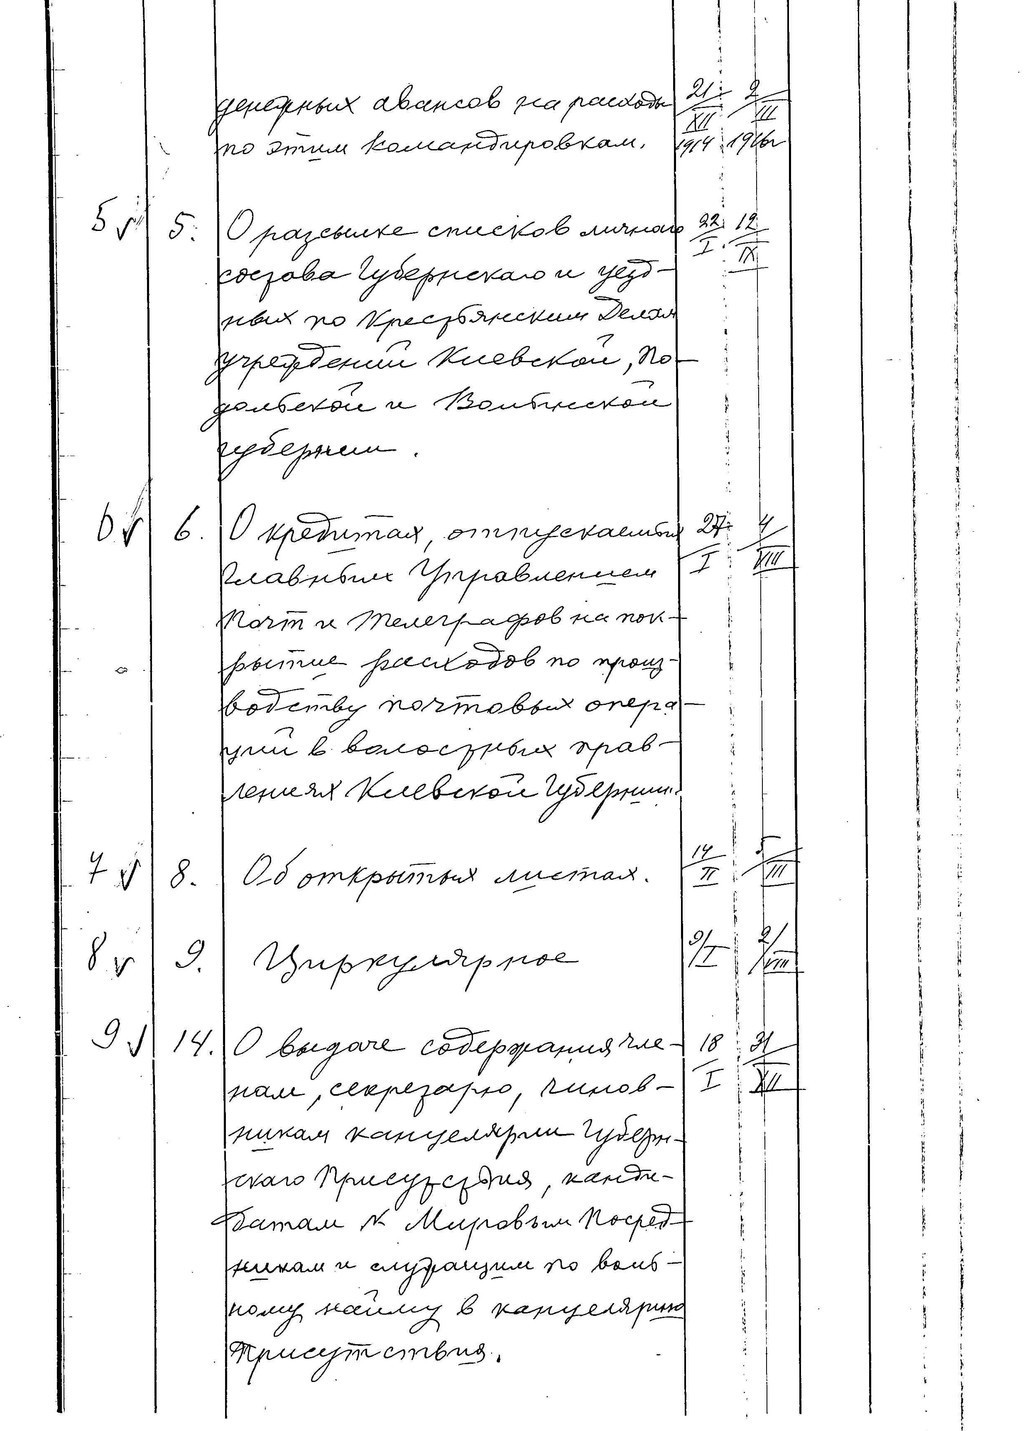 денежных авансов на расходы 21/XII 1914 2/III 1916г
по этим командировкам.
5 v 5. О разсылке списков личнаго 22/I 12/IX
состава Губернскаго и уезд-
ных по Крестьянским Делам
учреждений Киевской, По-
дольской и Волынской
губернии.
6 v 6. О кредитах, отпускаемых 27/I 4/VIII
Главным Управлением
Почт и Телеграфов на пок-
рытие расходов по произ-
водству почтовых опера-
ций в волостных прав-
лениях Киевской Губернии.
7 v 8. Об открытых листах. 14/II 5/III
8 v 9. Циркулярное 9/I 2/VIII
9 v 14. О выдаче содержания чле- 18/I 31/XII
нам, секретарю, чинов-
никам канцелярии Губерн-
скаго Присутствия, канди-
датам к Мировым Посред-
никам и служащим по воль-
ному найму в канцелярию
Присутствия.